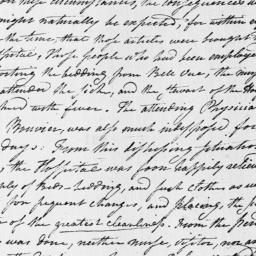 these circumstances, the consequences
might naturally be expected, for within
the time, that those articles were brought
spital, those people who had been employed
porting the bedding from Belle Vue, the nurse
attended the Sick, and the Stewart of the Ho
seized with fever. The attending Physician
Brewer, was also much indisposed, for
days. From this distressing situation
the Hospital was soon happily reliev
ply of Beds - bedding, and such clothes as w
for frequent changes, and placing, the p
of the greatest cleanliness. From the per
was done, neither nurse, visitor, nor